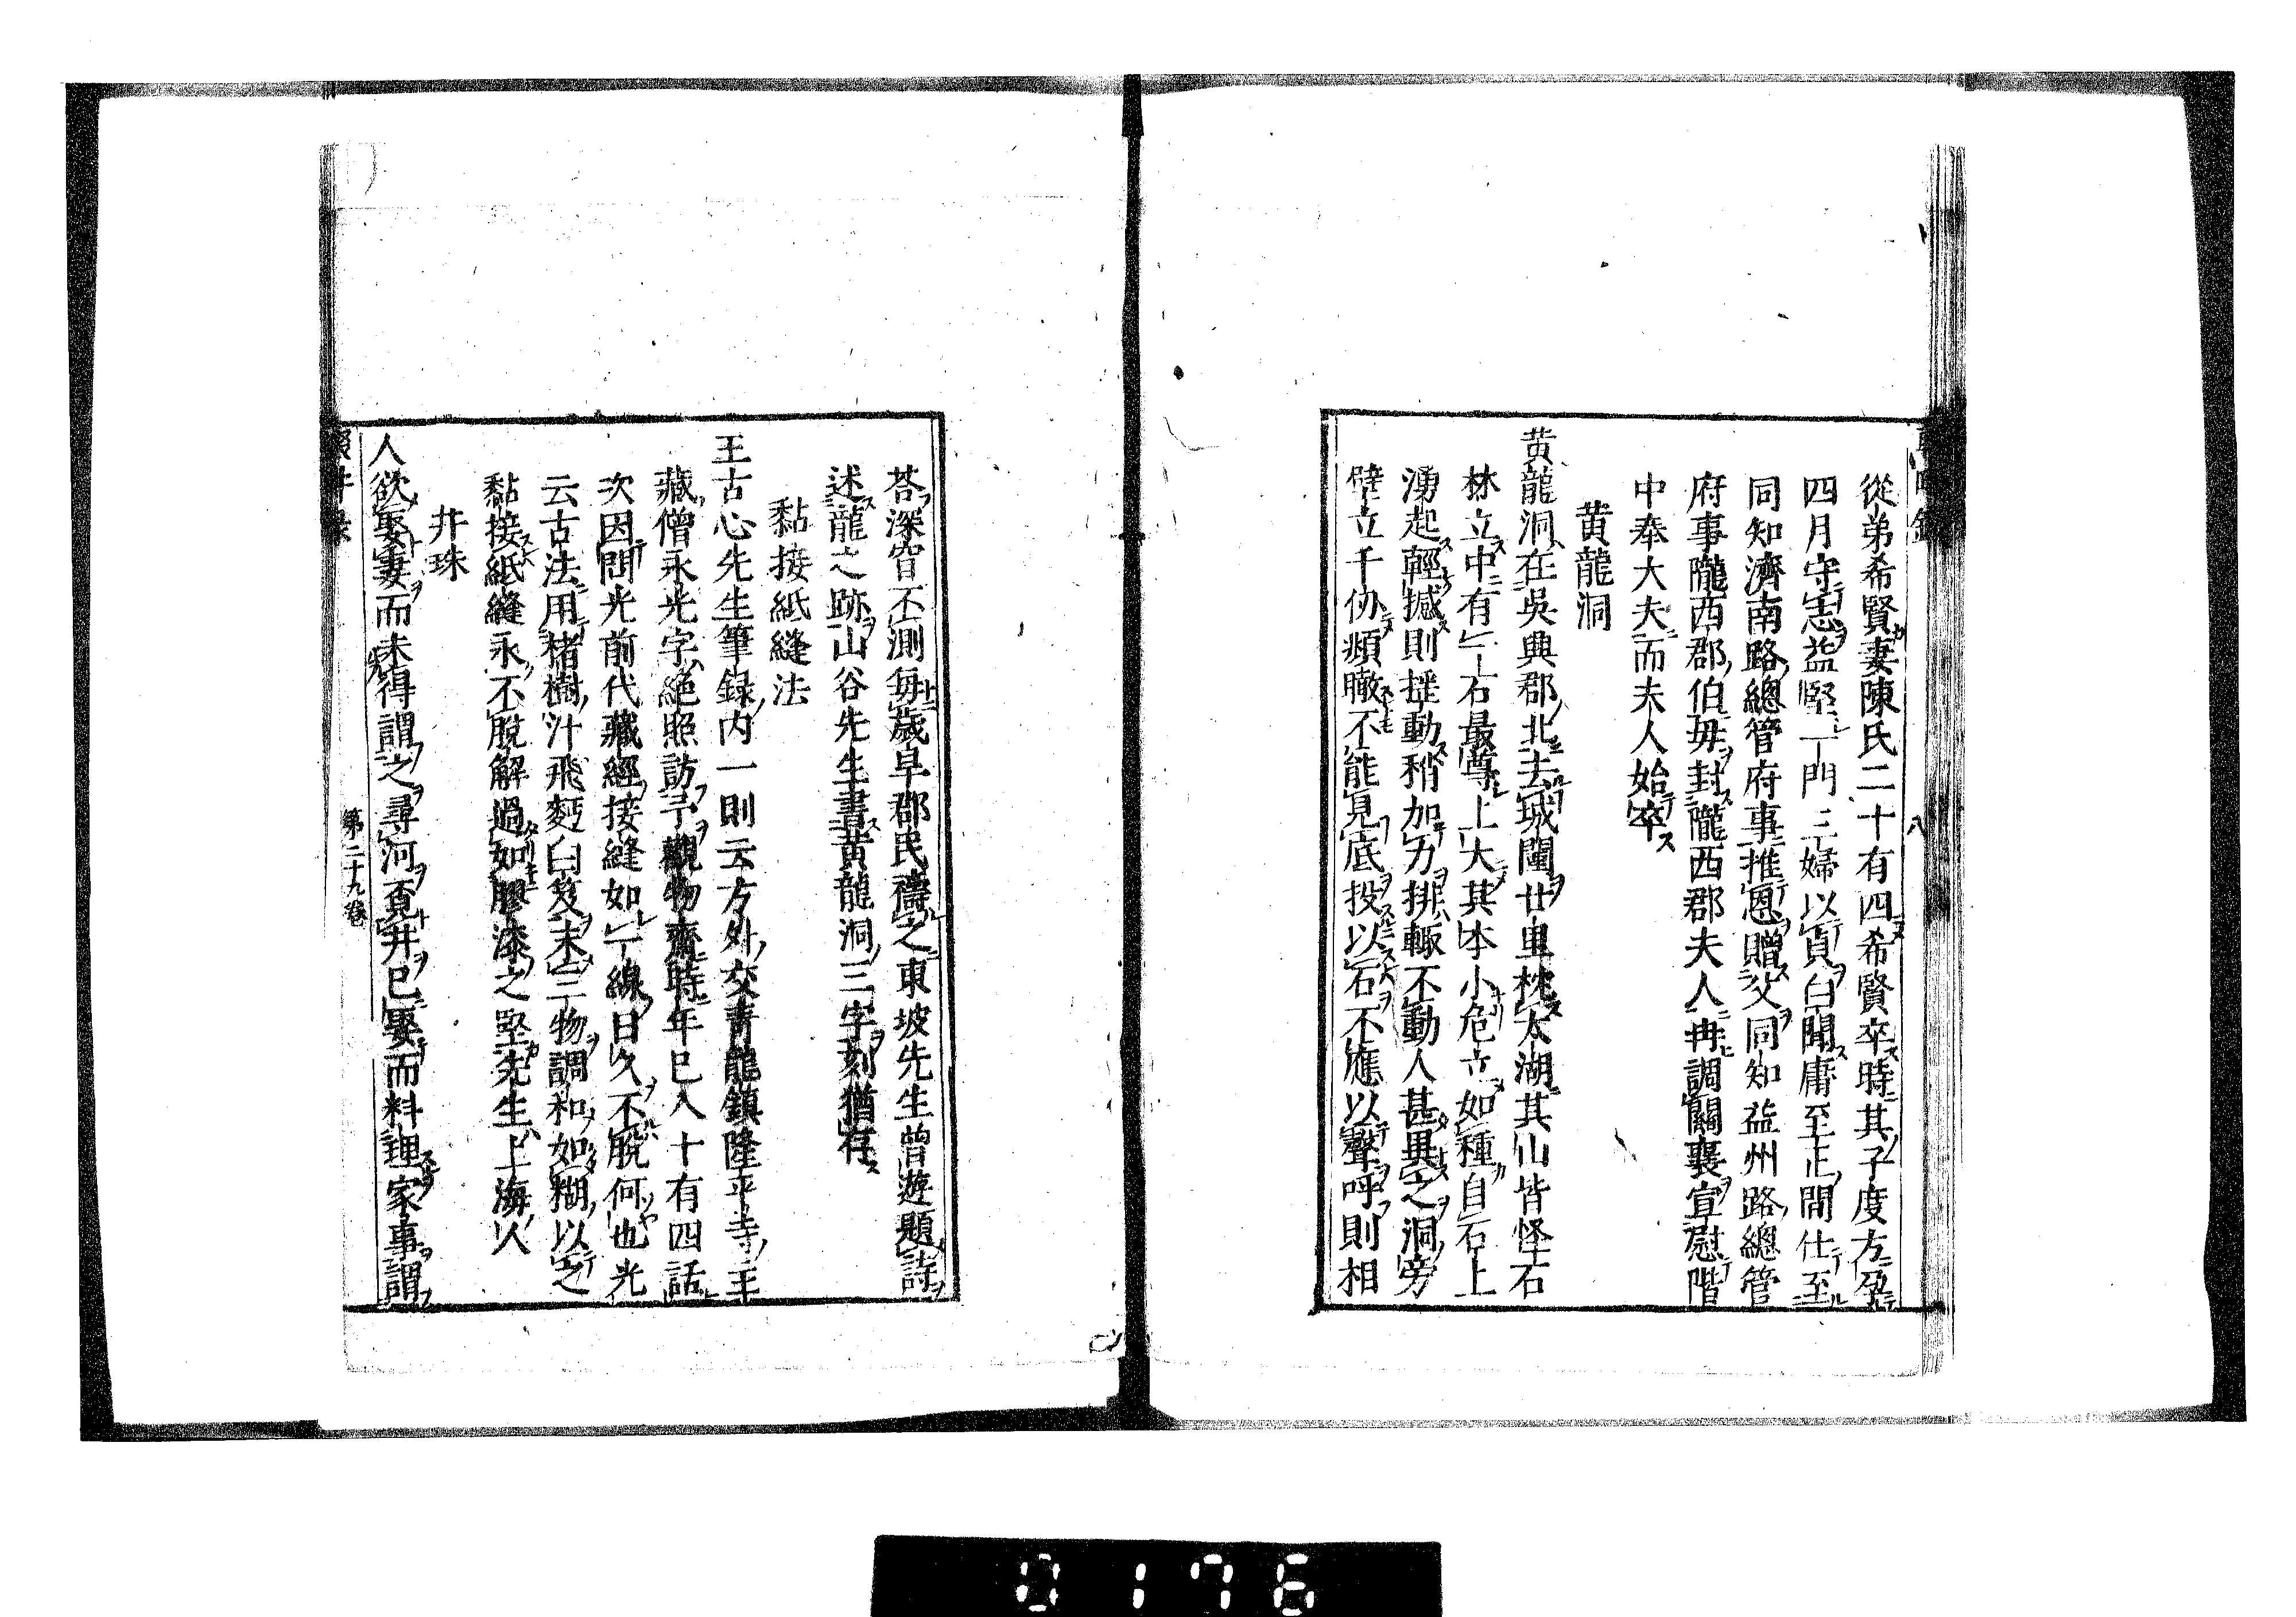 從弟希賢妻陳氏二十有四希賢卒時其子度方孕
四月守志益堅一門三婦以貞白聞庸至正間仕至
同知濟南路總管府事推恩贈父同知益州路總管
府事隴西郡伯母封隴西郡夫人冉調關襄宣慰階
中奉大夫而夫人始卒
黄龍洞
黄龍洞在吳興郡北去城闉廿里枕太湖其山皆怪石
林立中有一石最尊上大其本小危立如種自石上
湧起輕撼則揺動稍加力排輙不動人甚異之洞旁
壁立千仞頫瞰不能見底投以石不應以聲呼則相
荅深窅不測毎歲旱郡民禱之東坡先生曽遊題詩
述龍之跡山谷先生書黄龍洞三字刻猶存
黏接紙縫法
王古心先生筆録内一則云方外交青龍鎮隆平寺主
藏僧永光字絶照訪予觀物齋時年已八十有四話
次因問光前代藏經接縫如一線日久不脫何也光
云古法用楮樹汁飛麪白芨末三物調和如糊以之
黏接紙縫永不脫解過如膠漆之堅先生上海人
井珠
人欲娶妻而未得謂之尋河覓井已娶而料理家事謂
第二十九卷
八